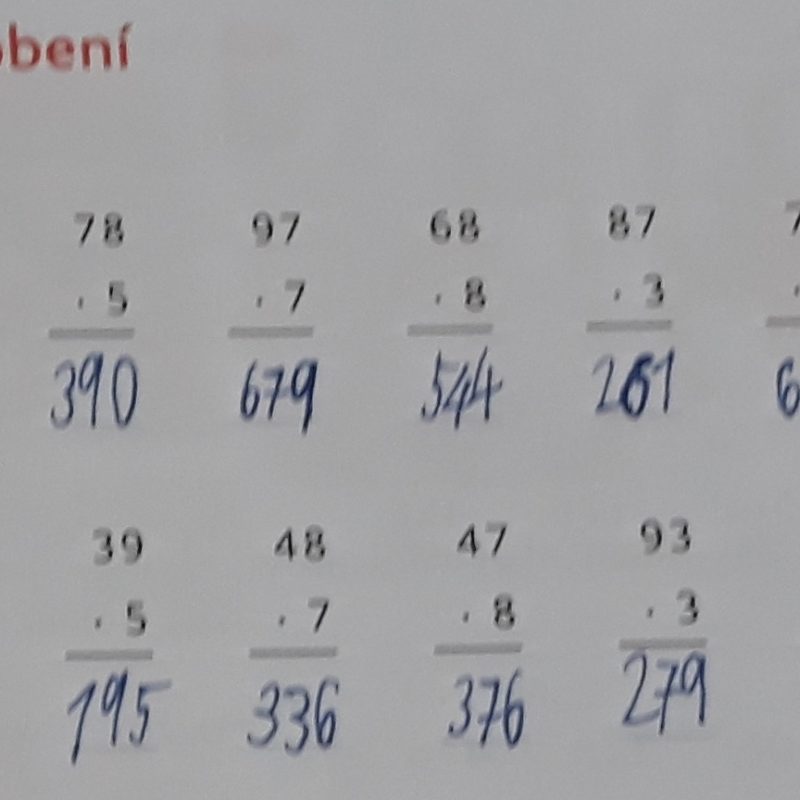 bení
78 97 68 87 7
· 5 · 7 · 8 · 3 ·
390 679 544 261 6
39 48 47 93
· 5 · 7 · 8 · 3
195 336 376 279